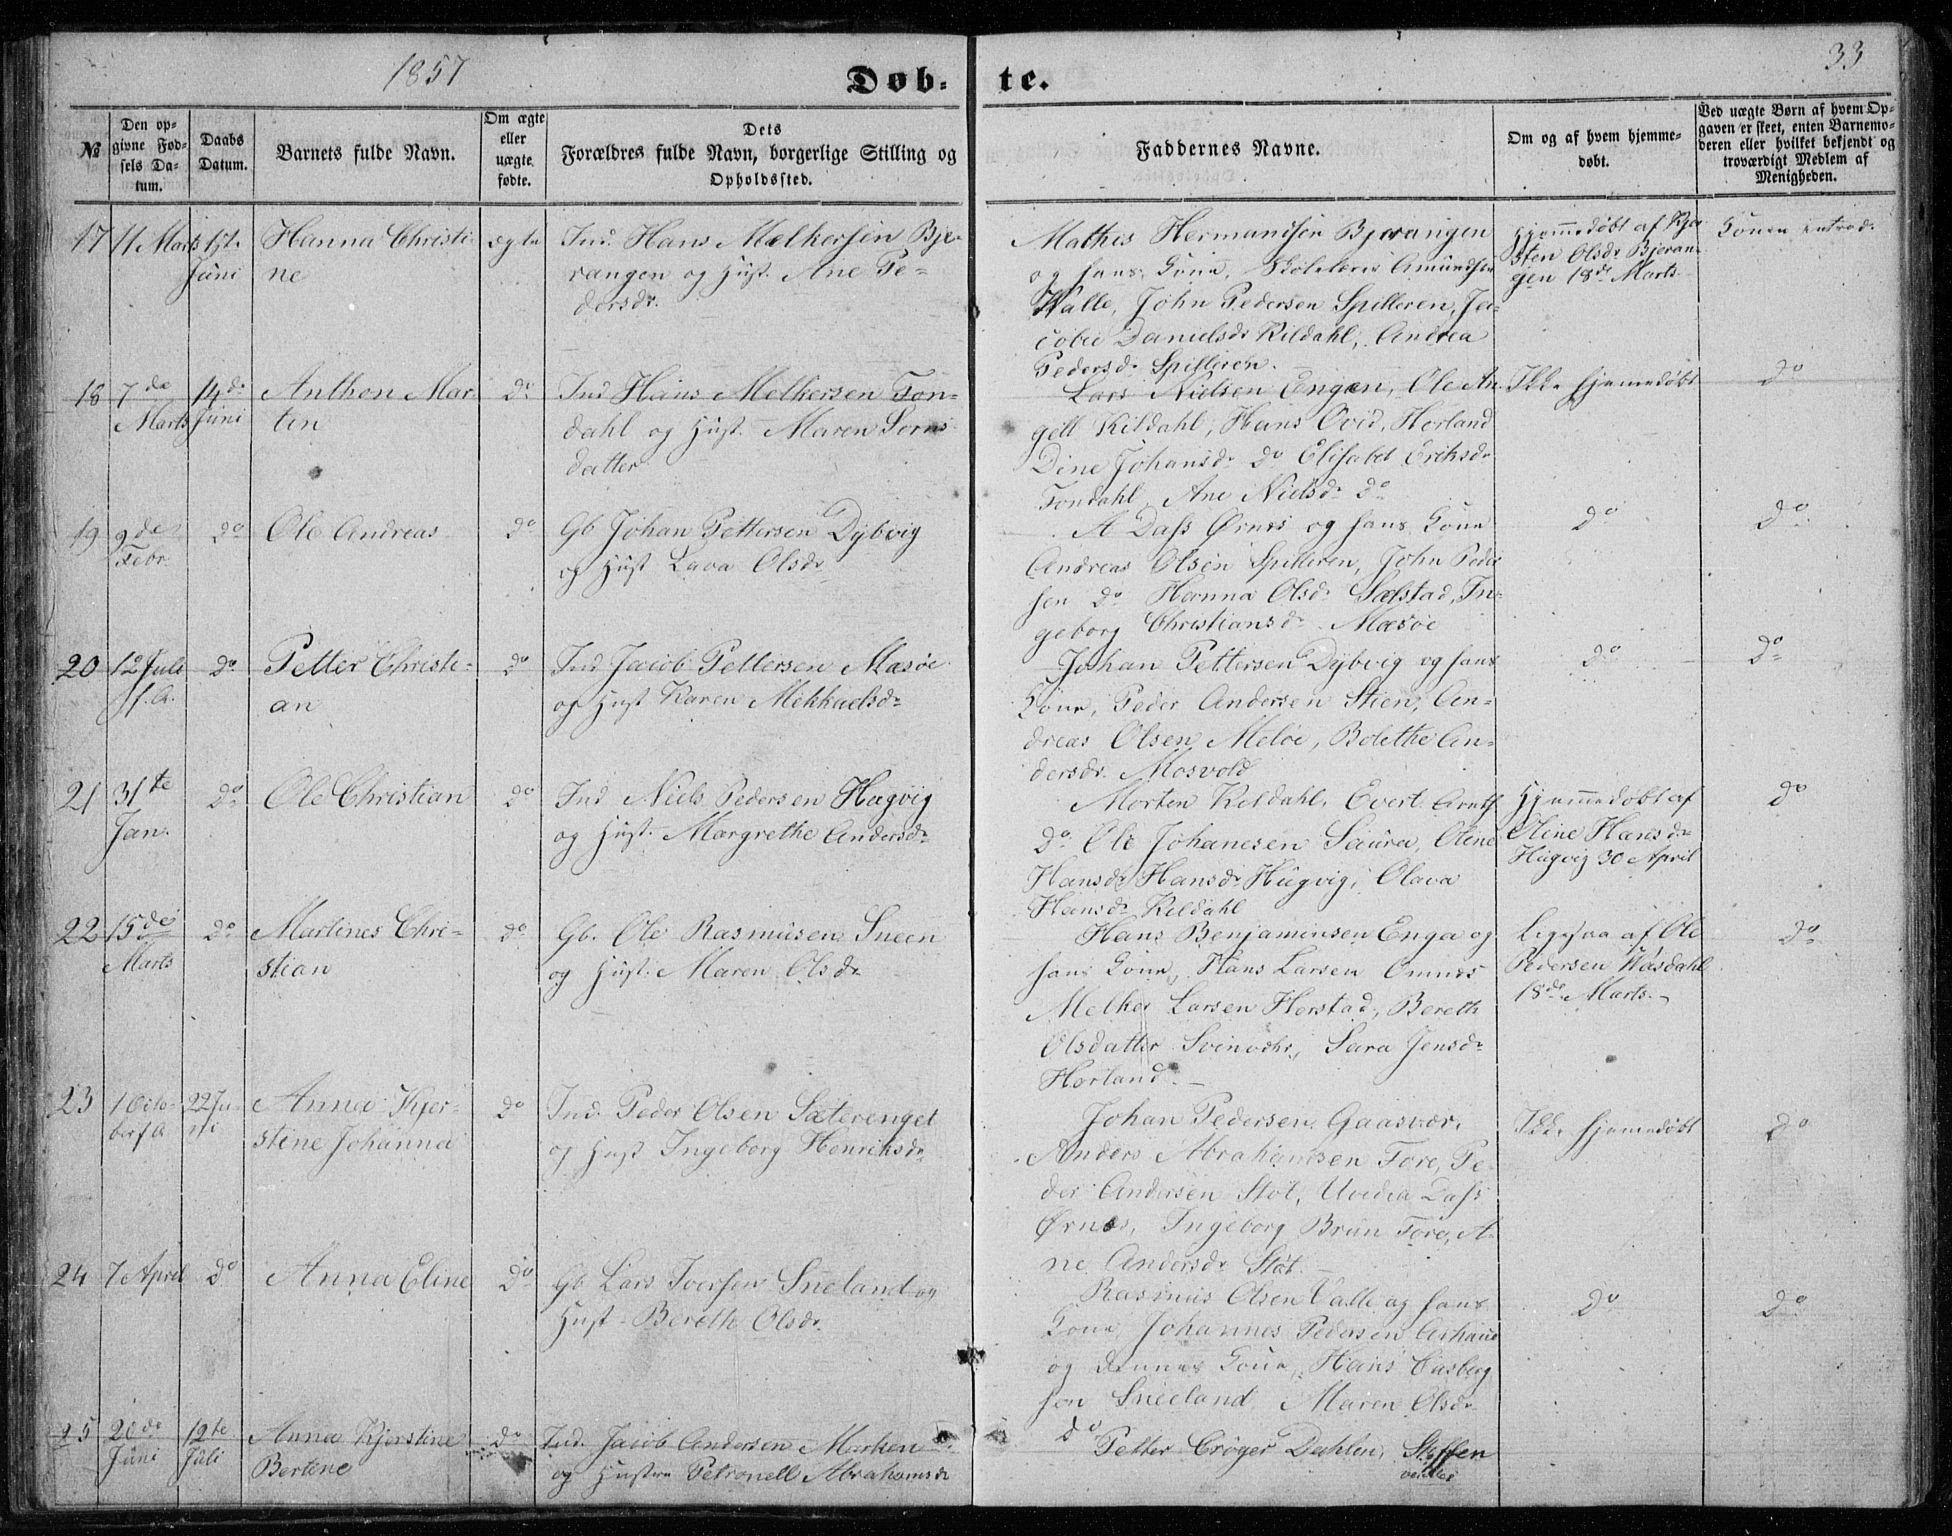 1857
33
Døb- te.
№
Den op-
givne Fød-
sels Da-
tum.
Daabs
Datum.
Barnets fulde Navn.
Om ægte
eller
uægte
fødte.
Dets
Forældres fulde Navn, borgerlige Stilling og
Opholdssted.
Faddernes Navne.
Om og af hvem hjemme-
døbt.
Ved uægte Børn af hvem Op-
gaven er skeet, enten Barnemo-
deren eller hvilket bekjendt og
troværdigt Medlem af
Menigheden.
17 11 Marts 1ste Juni
Hanna Christi-
ne
ægte
Ind. Hans Melkersen Bje-
rangen og Hust. Ane Pe-
dersdr.
Mathis Hermandsen Bjerangen
og hans Kone, Skolelærer Amundsen
Walle, John Pedersen Spilleren, Ja-
cobie Danielsdr Kildahl, Andrea
Pedersdr Spilleren.
Hjemmedøbt af Kjer-
sten Olsdr Bjeran-
gen 18de Marts
Konen introd.
18 7de Marts 14de Juni
Anthon Mar-
tin
do
Ind Hans Melkersen Fon-
dahl og Hust. Maren Sørens-
datter
Lars Nielsen Engen, Ole An-
gell Kildahl, Hans Ovid, Horland
Dine Johansdr do Elisabet Eriksdr
Fondahl, Ane Nielsdr do
Ikke hjemmedøbt
do
19 9de Febr. do
Ole Andreas
do
Gb Johan Pettersen Dybvig
og Hust Lava Olsdr
A Dass Ørnes og hans Kone
Andreas Olsen Spilleren, John Peder-
sen do Hanna Olsdr Selstad, In-
geborg Christiansdr Mesøe
do
do
20 12 Juli f. A. do
Petter Christi-
an
do
Ind Jacob Pettersen Mesøe
og Hust Karen Mikkaelsdr
Johan Pettersen Dybvig og hans
Kone, Peder Andersen Stien, An-
dreas Olsen Meløe, Bolethe An-
dersdr. Mosvold
do
do
21 31te Jan. do
Ole Christian
do
Ind Niels Pedersen Hugvig
og Hust. Margrethe Andersdr
Morten Kildahl, Evert
do Ole Johanesen Saura, Oline
Hansdr Hansdr Hugvig, Olava
Hansdr Kildahl
Hjemmedøbt af
Oline Hansdr
Hugvig 30 April
do
22 15de Marts do
Martines Chri-
stian
do
Gb. Ole Rasmusen Sneen
og Hust. Maren Olsdr
Hans Benjaminsen Enga og
hans Kone, Hans Larsen Omnes
Melker Larsen Horstad, Bereth
Olsdatter Svinvær, Sara Jensdr
Horland.
Ligesaa af Ole
Pedersen Wasdahl
18de Marts.
do
23 1 October f A 22 Juni
Anna Kjer-
stine Johanna
do
Ind. Peder Olsen Sæterenget
og Hust Ingeborg Henriksdr
Johan Pedersen Gaasvær,
Anders Abrahamsen Fore, Pe-
der Andersen Støt, Uvedia Dass
Ørnes, Ingeborg Brun Fore, A-
ne Andersdr Støt.
Ikke hjemmedøbt
do
24 7 April do
Anna Eline
do
Gb Lars Iversen Sneland og
Hust Bereth Olsdr.
Rasmus Olsen Valle og hans
Kone, Johannes Pedersen
og dennes Kone, Hans
sen Sneeland Maren Olsdr
do
do
do
25 20de Juni 12te Juli
Anna Kjerstine
Bertine
do
Ind. Jacob Andersen Marken
og Hustru Petronell Abrahamsdr
Petter Crøger Dahlen, Steffen